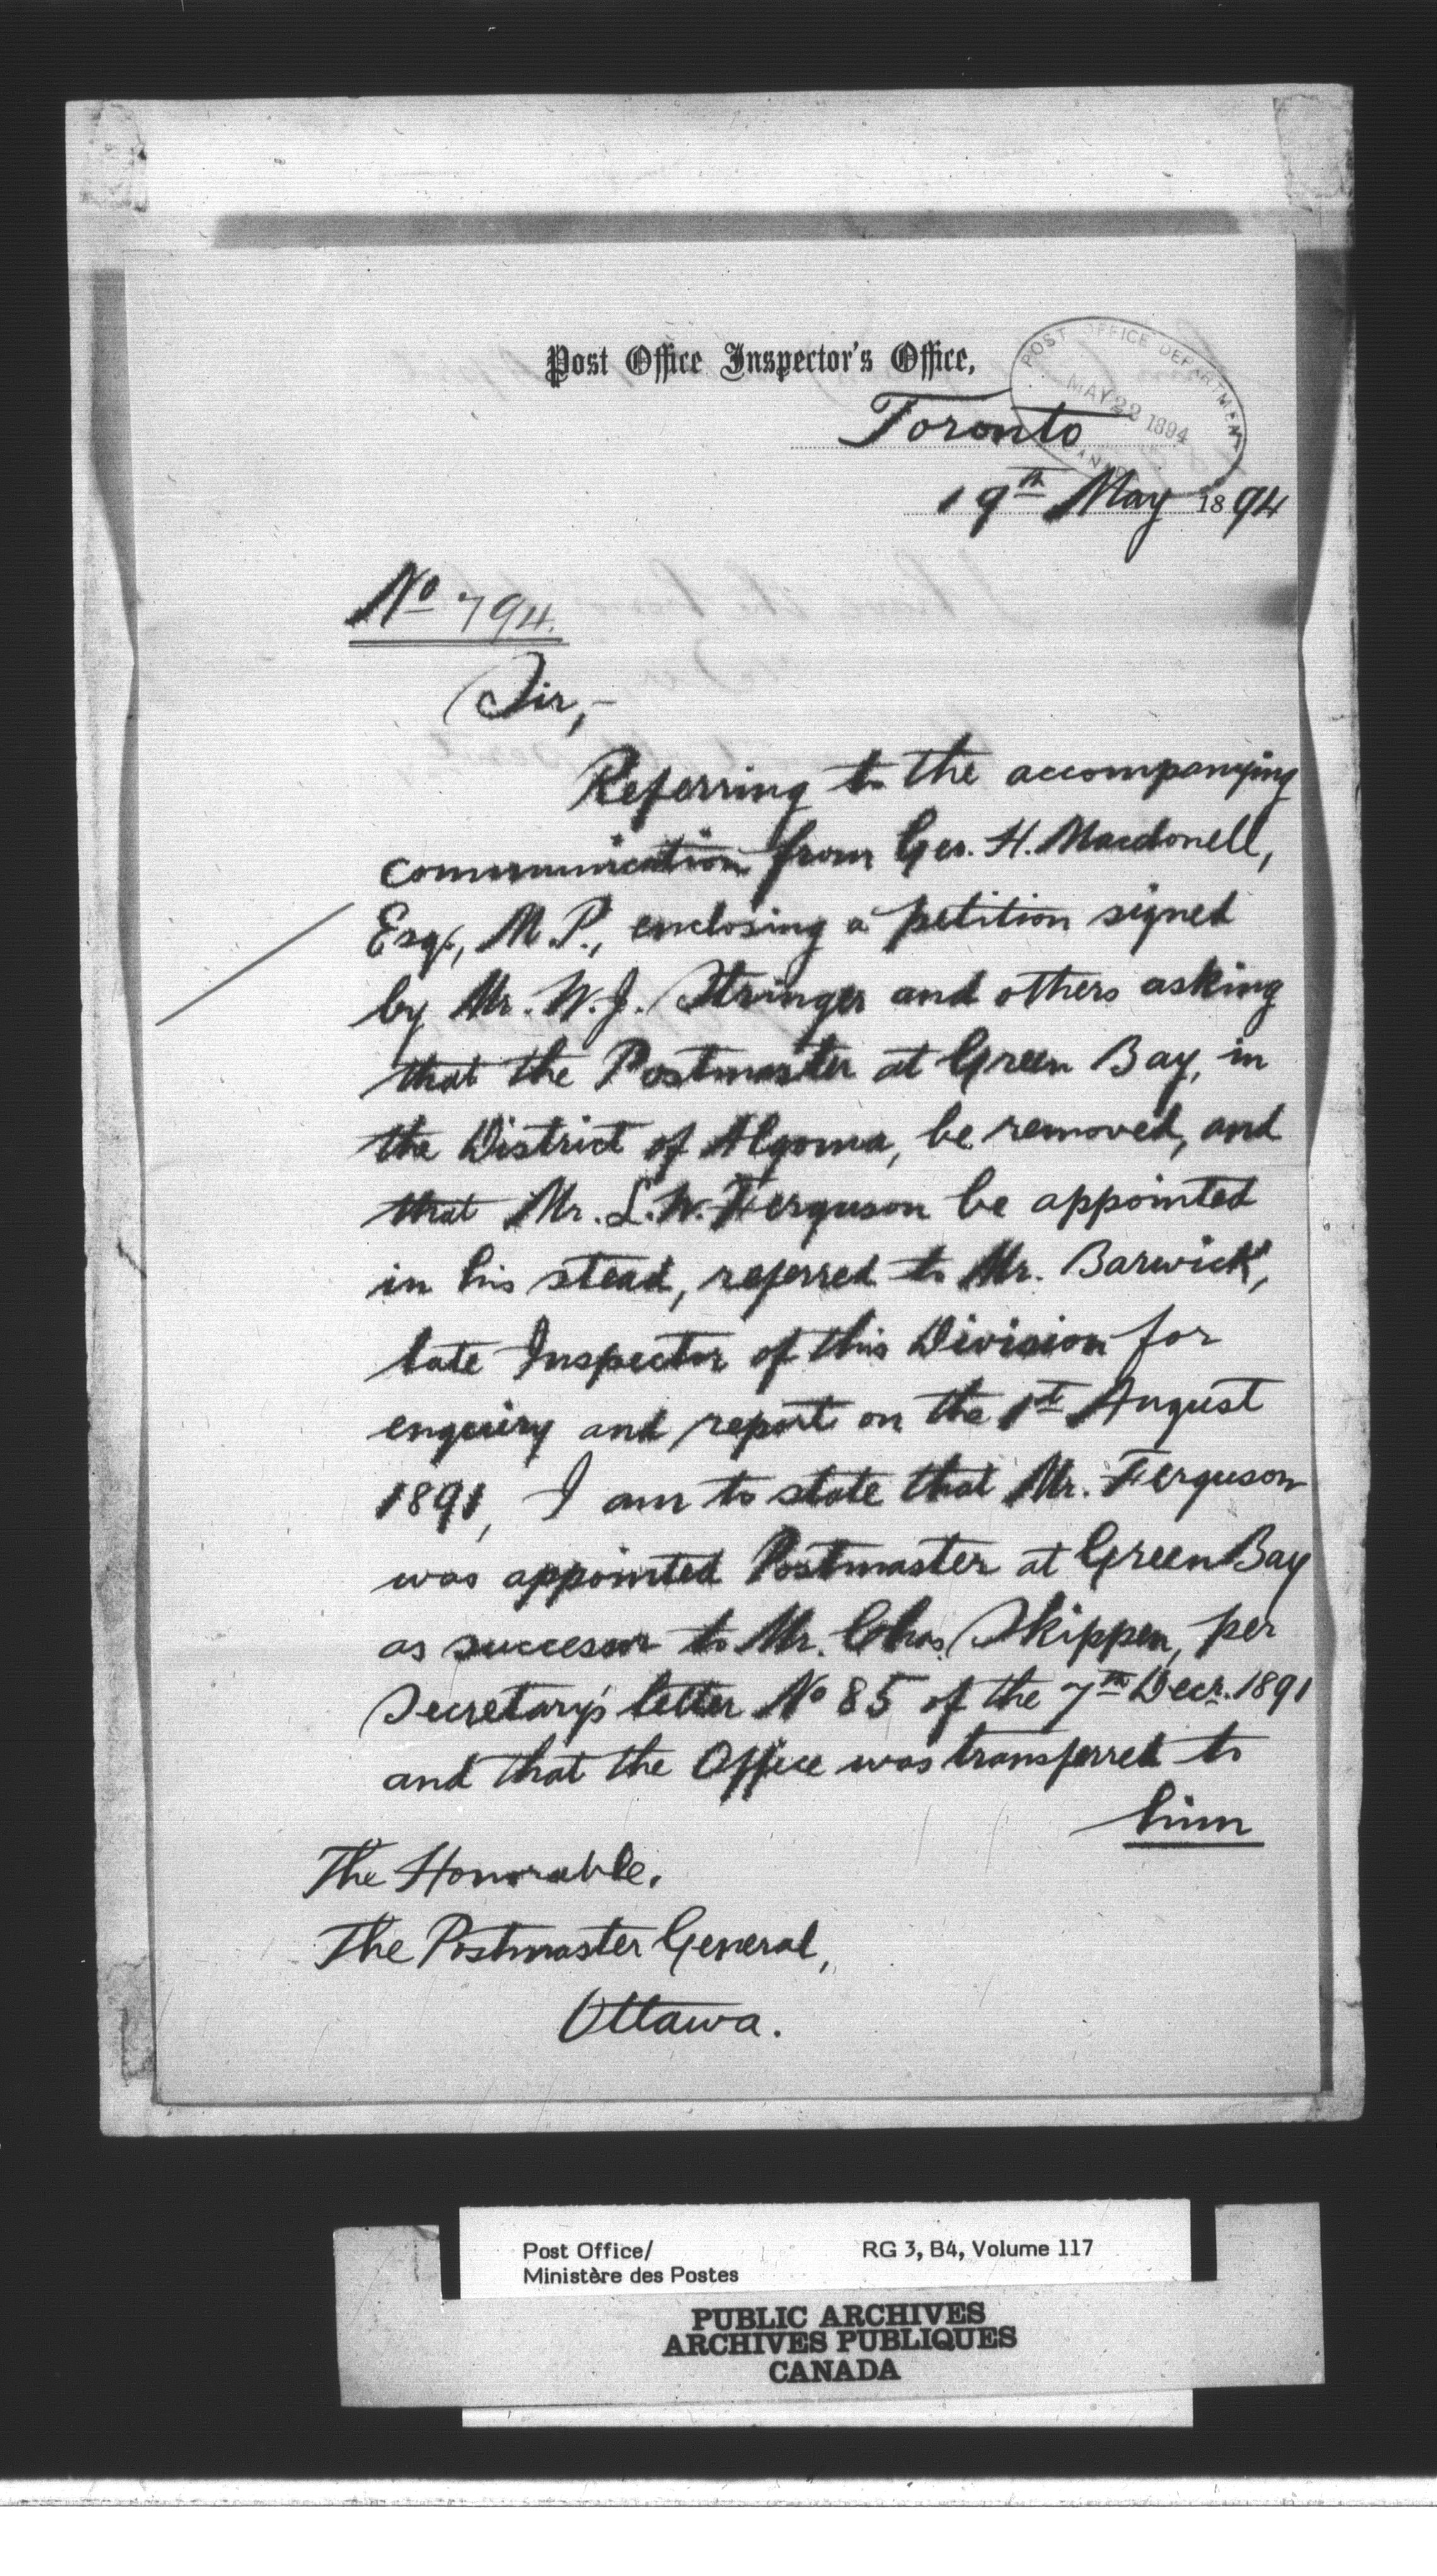 Post Office Inspector's Office,
POST OFFICE DEPARTMENT
MAY 22 1894
CANADA
Toronto
19th May 1894
No 794.
Sir,-
Referring to the accompanying
communication from Geo. H. Macdonell,
Esq., M.P., enclosing a petition signed
by Mr. W. J. Stringer and others asking
that the Postmaster at Green Bay, in
the District of Algoma, be removed, and
that Mr. L. W. Ferguson be appointed
in his stead, referred to Mr. Barwick,
late Inspector of this Division for
enquiry and report on the 1st August
1891, I am to state that Mr. Ferguson
was appointed Postmaster at Green Bay
as successor to Mr. Chas. Skippen, per
Secretary's letter No 85 of the 7th Decr. 1891
and that the Office was transferred to
him
The Honorable.
The Postmaster General,
Ottawa.
Post Office/ RG 3, B4, Volume 117
Ministère des Postes
PUBLIC ARCHIVES
ARCHIVES PUBLIQUES
CANADA